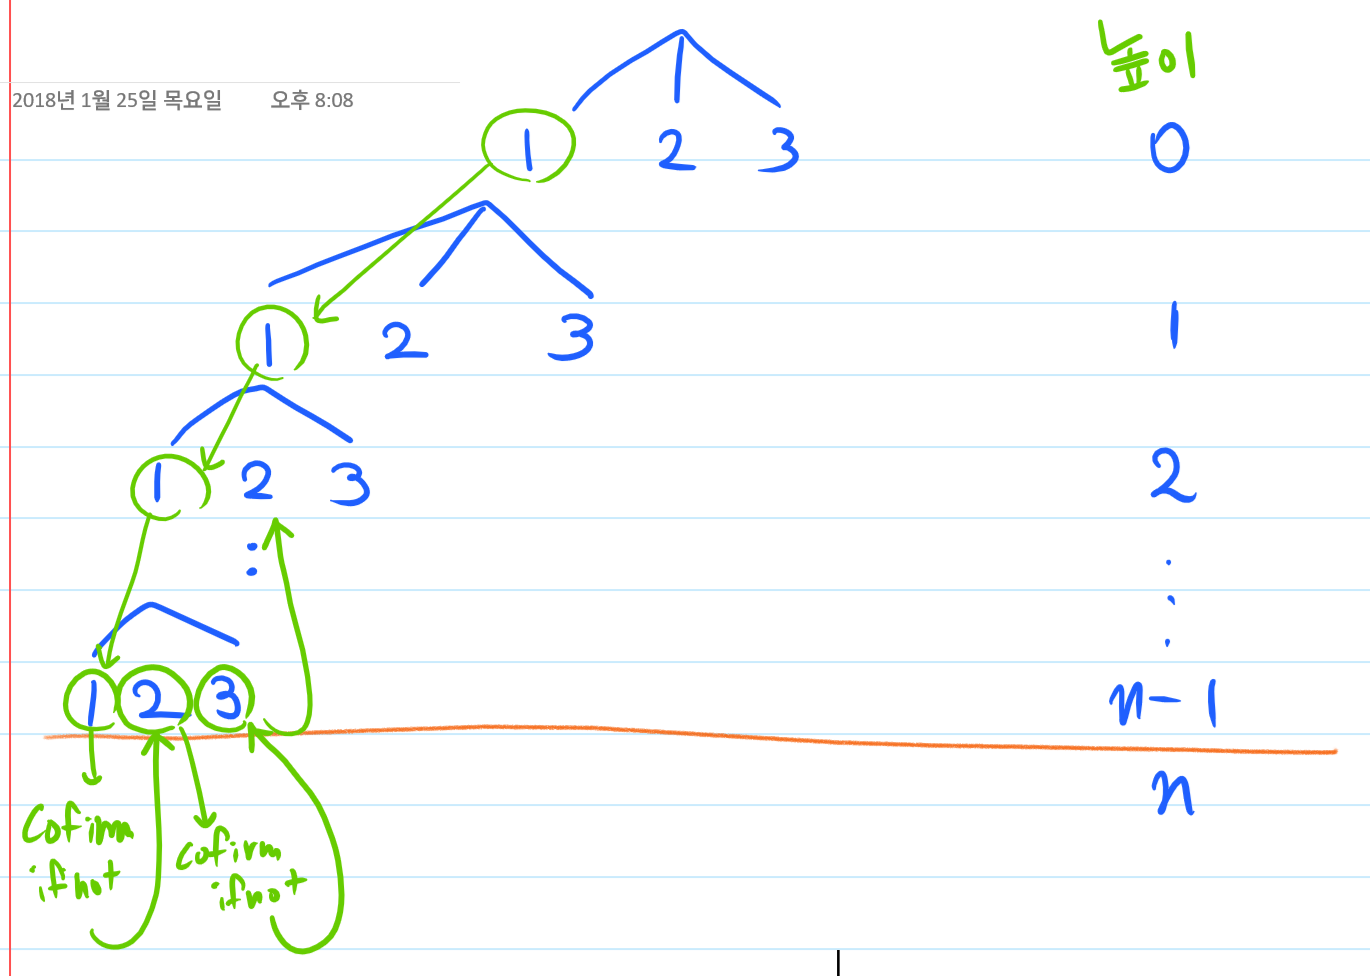 높이
2018년 1월 25일 목요일 오후 8:08
1 2 3 0
1 2 3 1
1 2 3 2
:
1 2 3 n-1
n
Cofirm
if not
cofirm
if not